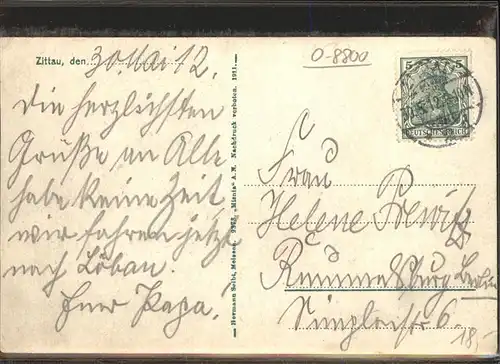 O-8800
Zittau, den 30. Mai 12.
Die herzlichsten
Grüße an Alle
habe keine Zeit
wir fahren jetzt
nach Löbau.
Euer Papa.
Hermann Seibt, Meissen. 9373 „Mienia“ A.K. Nachdruck verboten. 1911.
5 5
DEUTSCHES REICH
Frau
Helene
Rummelsburg Berlin
6.
18,-